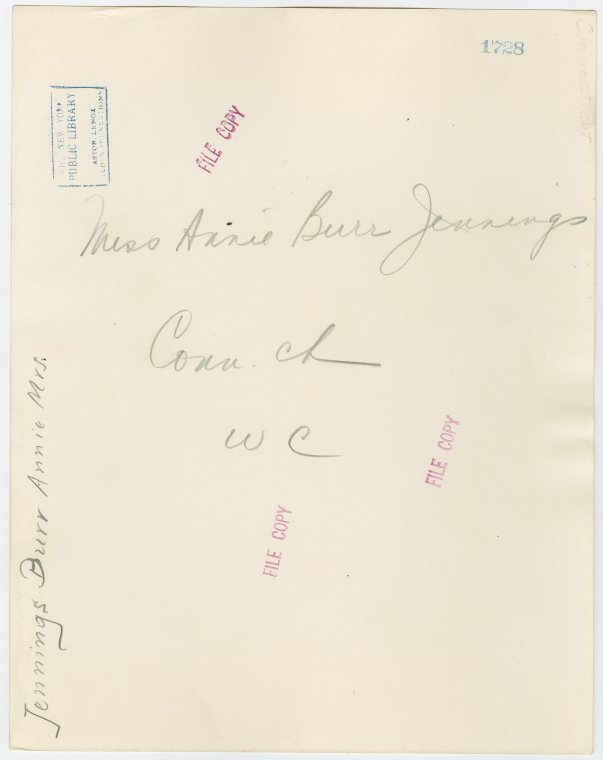 1728
Connecticut
THE NEW YORK
PUBLIC LIBRARY
ASTOR LENOX
TILDEN FOUNDATIONS
FILE COPY
Miss Annie Burr Jennings
Conn. ch
W C
FILE COPY
FILE COPY
Jennings Burr Annie Mrs.